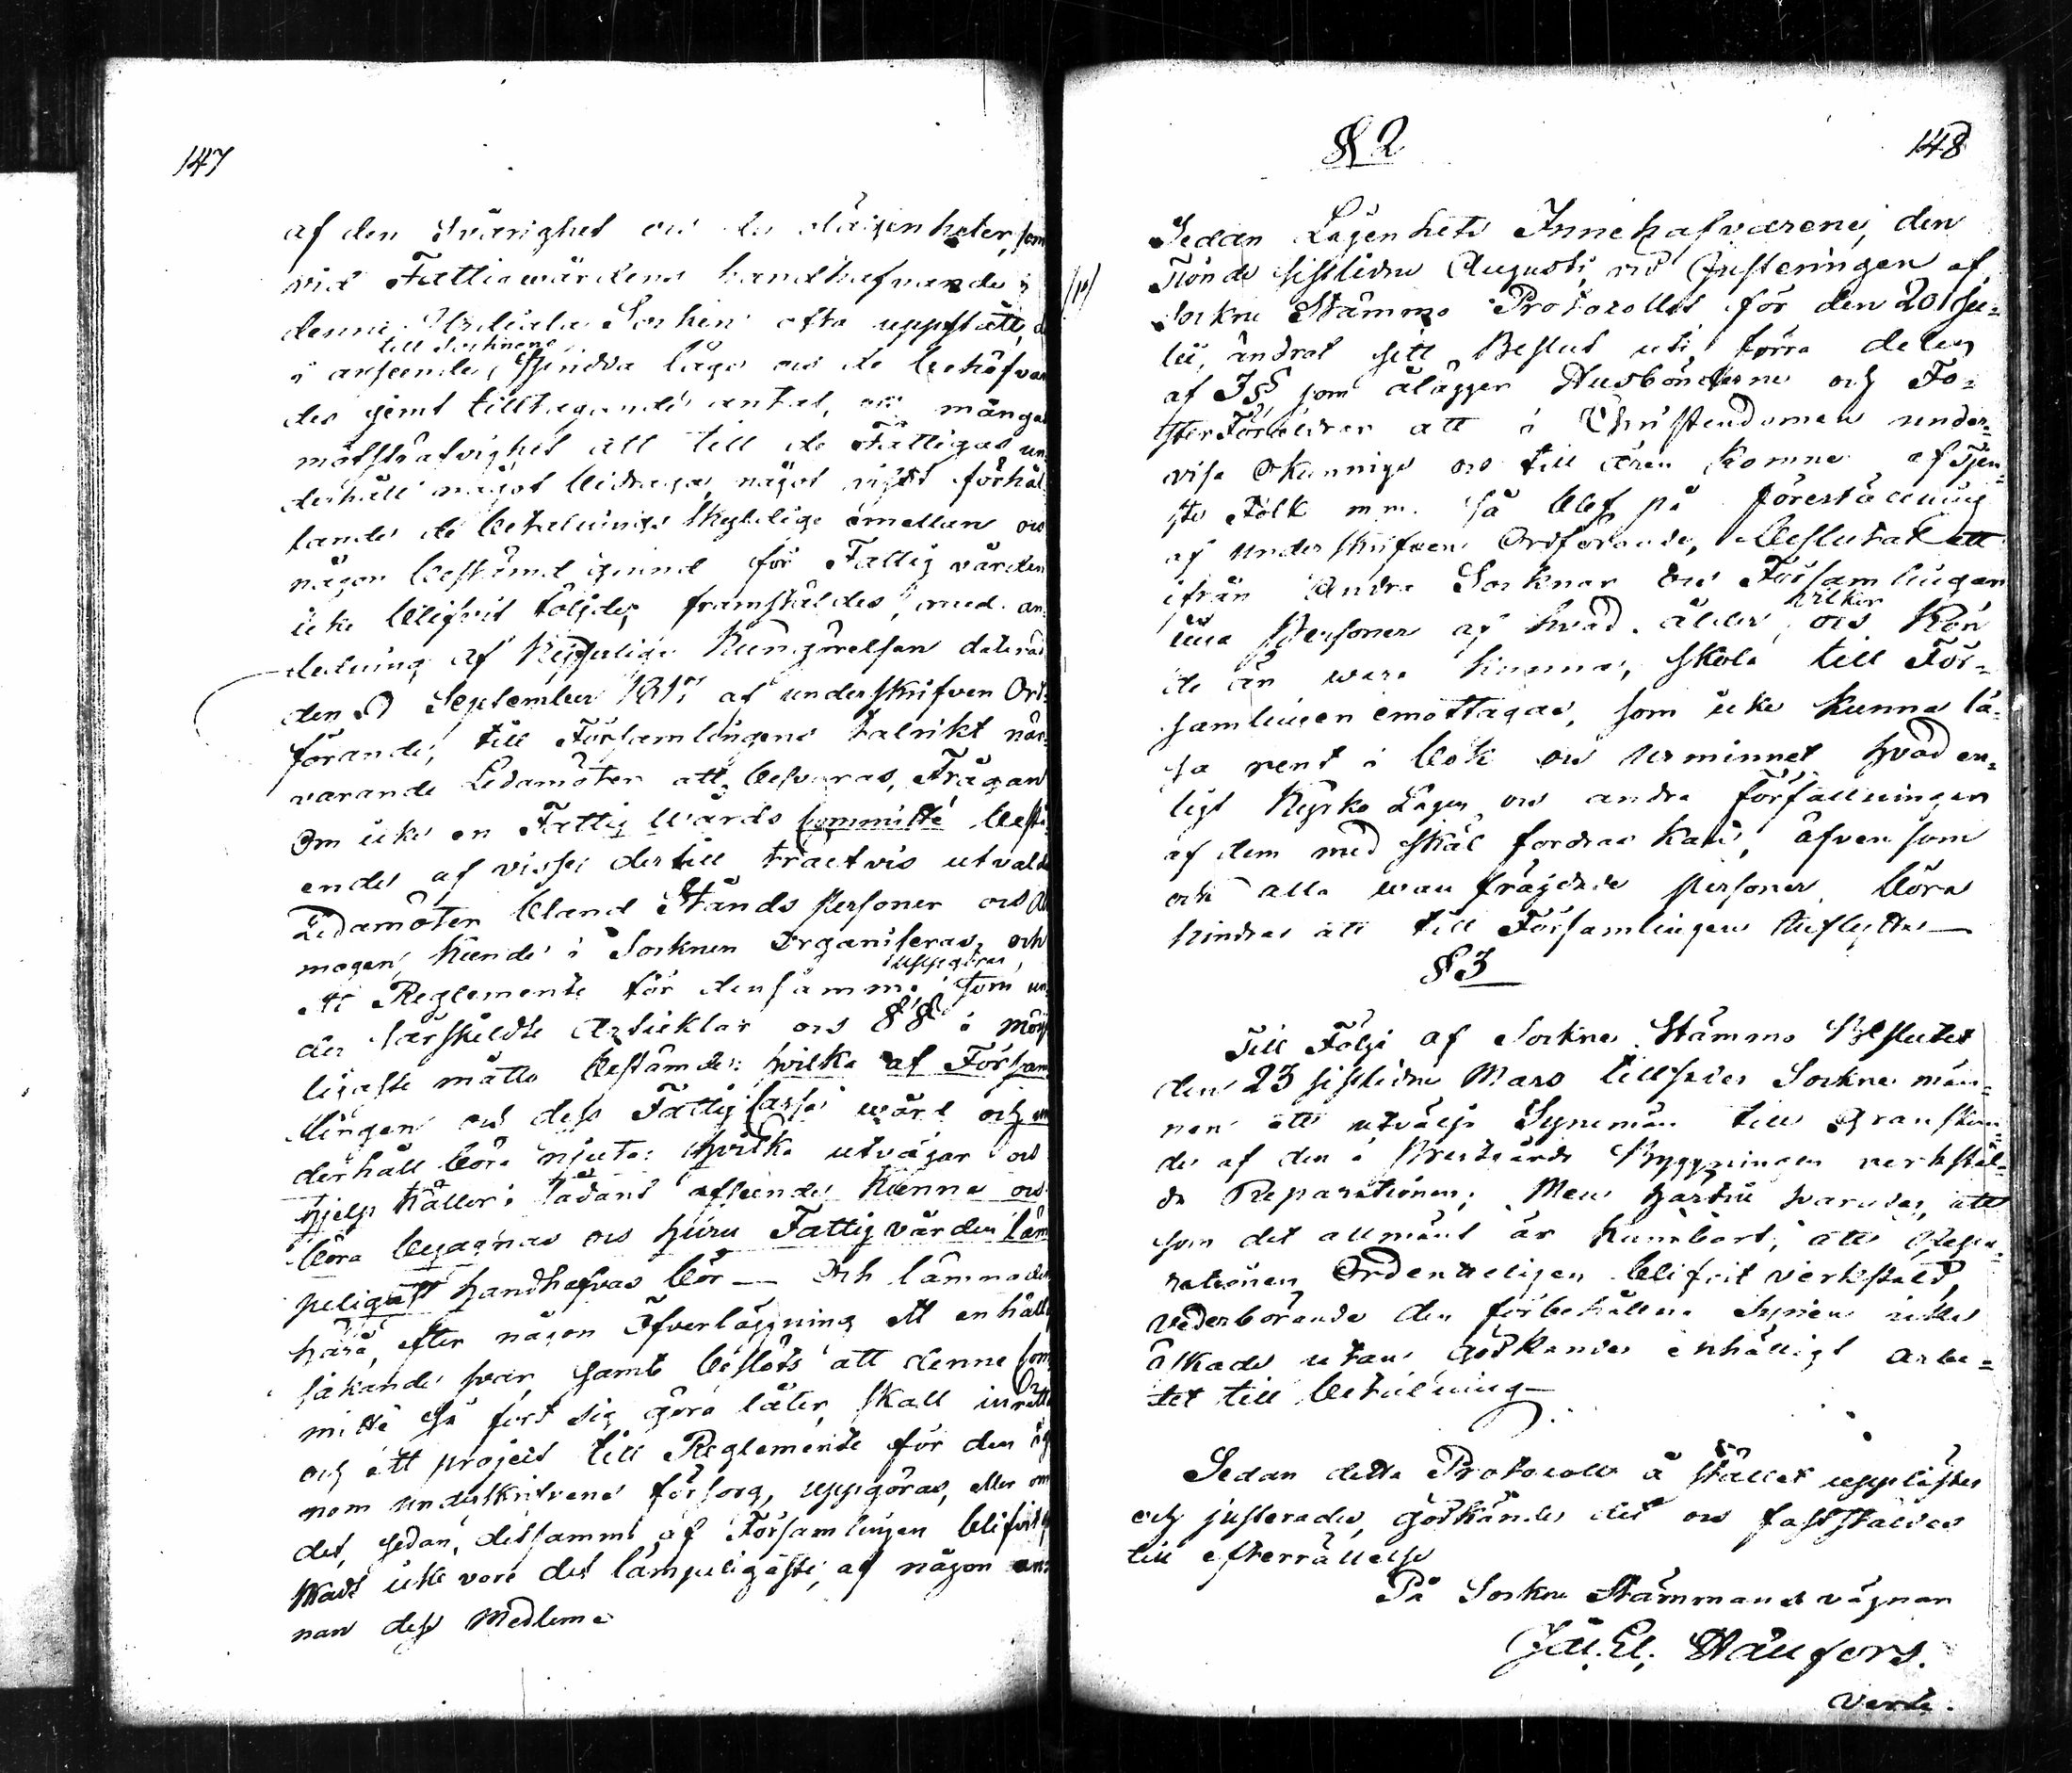 147
af den Svårighet och de olägenheter, som
vid Fattigwårdens handhafvande i
denne Socken ofta uppstått,
till Socknens
i anseende spridda läge och de behöfvan
des jemt tilltagande antal, och mångas
motsträfvighet att till de Fattigas un
derhåll något bidraga, något visst förhål
lande de betalnings skyldige emellan och
någon bestämd grund för Fattig vården
icke blifvit följder, framstäldes, med an
ledning af Kongl. Kungörelsen daterad
den September 1817 af underskrifven Ord
förande, till Församlingens talrikt när
varande Ledamöter att besvaras, Frågan
Om icke en Fattig Wårds Committé bestå
ende af visse dertill tractvis utvalde
Ledamöter bland Stånds Personer och Al
mogen, kunde i Socknen Organiseras, och
uppgöras,
ett Reglemente för densamma som un
der särskildte Artiklar och §§ i möj
ligaste måtto bestämde: hvilka af Försam
lingen och dess Fattig Cassa wård och un
derhåll böra njuta: hvilka utvägar och
hjelp källor i sådant afseende kunna och
böra begagnas och huru Fattig vården läm
peligast handhafvas bör — Och lämnades
härå, efter någon Öfverläggning ett enhälligt
jakande svar, samt beslöts att denne Com
mitté så fort sig göra låter, skall inrätt
och ett project till Reglemente för den
nom underskrifvens försorg, uppgöras, eller om
det, sedan, detsamma af Församlingen blifvit
skadt icke vore det lämpeligaste, af någon an
nan dess Medlem
148
§ 2
Sedan Lägenhets Innehafvarene, den
Tionde sistlidne Augusti, vid Justeringen af
Sockne Stämmo Protocollet för den 20 Ju=
lii, ändrat sitt Beslut uti förra delen
af 3 § som ålägger Husbönderne och Fo=
sterföräldrar att i Christendomen under=
visa okunniga och till åren komne af Tjen=
ste Folk m.m. så blef på föreställning
af underskrifven Ordförande, beslutat att
ifrån Andra Socknar och Församlingar
hvilken
inga Personer af hvad ålder, och Kön
de än vara kunna, skola till För=
samlingen emottagas, som icke kunna lä=
sa rent i bok och ur minnet hvad en=
ligt Kyrko Lagen och andra författningar
af dem med skäl fordras kan, äfven som
och alla wanfrägdade personer böra
hindras att till Församlingen inflytta—
§ 3
Till Följe af Sockne Stämmo Beslutet
den 23 sistlidne Mars tillsades Sockne män=
nen att utvälja Synemän till Granskan=
de af den i Prestgårds Byggningen verkstäl=
da Reparationen; Men svarades, att
som det allmänt är kunnbart, att Repa=
rationen Ordenteligen blifvit verkstäld,
Vederbörande den förbehållna Synen icke
åskade utan godkändes enhälligt arbe=
tet till betalning—
Sedan detta Protocoll å stället upplästes
och justerades, godkändes det och fastställdes
till efterrättelse
På Sockne Stämmans vägnar
verte.